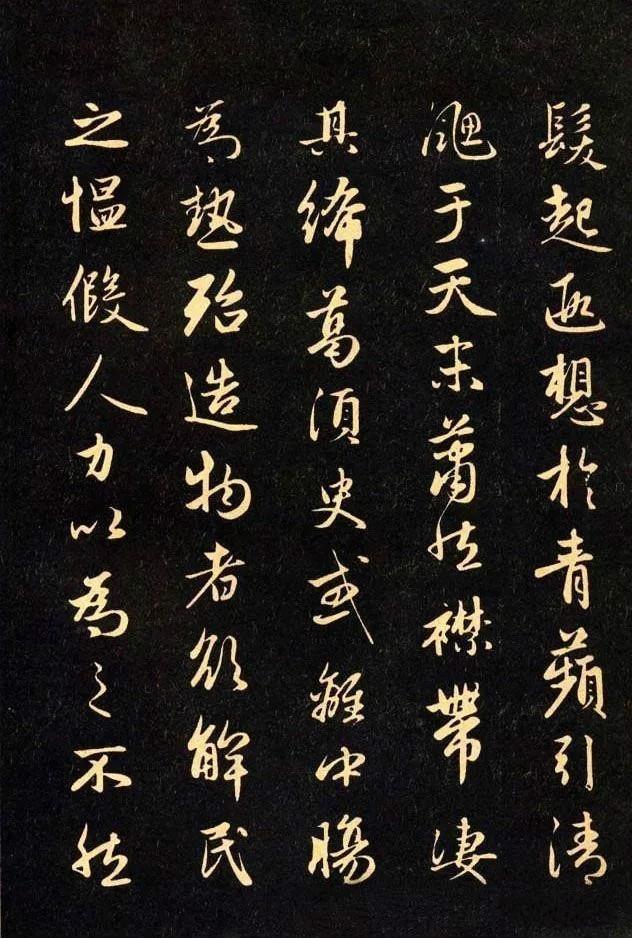 髮起遐想於青蘋引清
颸于天末蕭然襟帶凄
其絺葛須臾或離中腸
為熱殆造物者欲解民
之愠假人力以為之不然